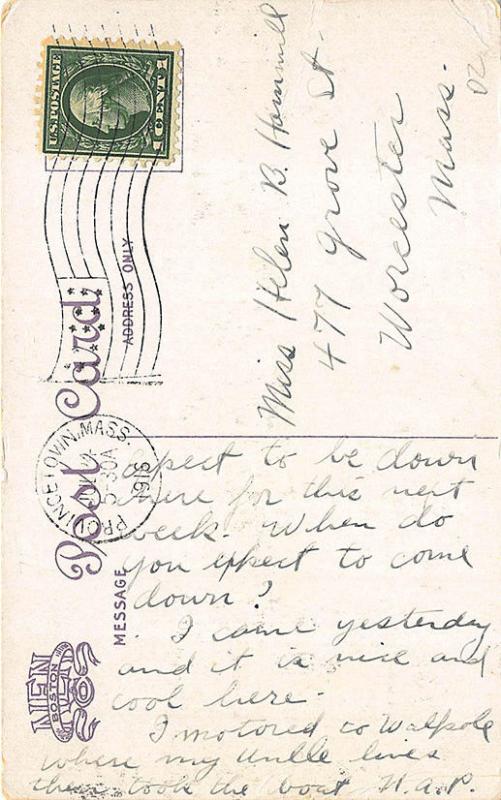 U.S. POSTAGE
1 CENT 1
PROVINCETOWN, MASS.
5-30A
1916
Post Card
ADDRESS ONLY
Miss Helen B. Hammill
477 Grove St.
Worcester
Mass.
MESSAGE
expect to be down
here for this next
week. When do
you expect to come
down?
I came yesterday
and it is nice and
cool here.
I motored to Walpole
where my Unlle lives
then took the boat N.A.P.
NEN
BOSTON